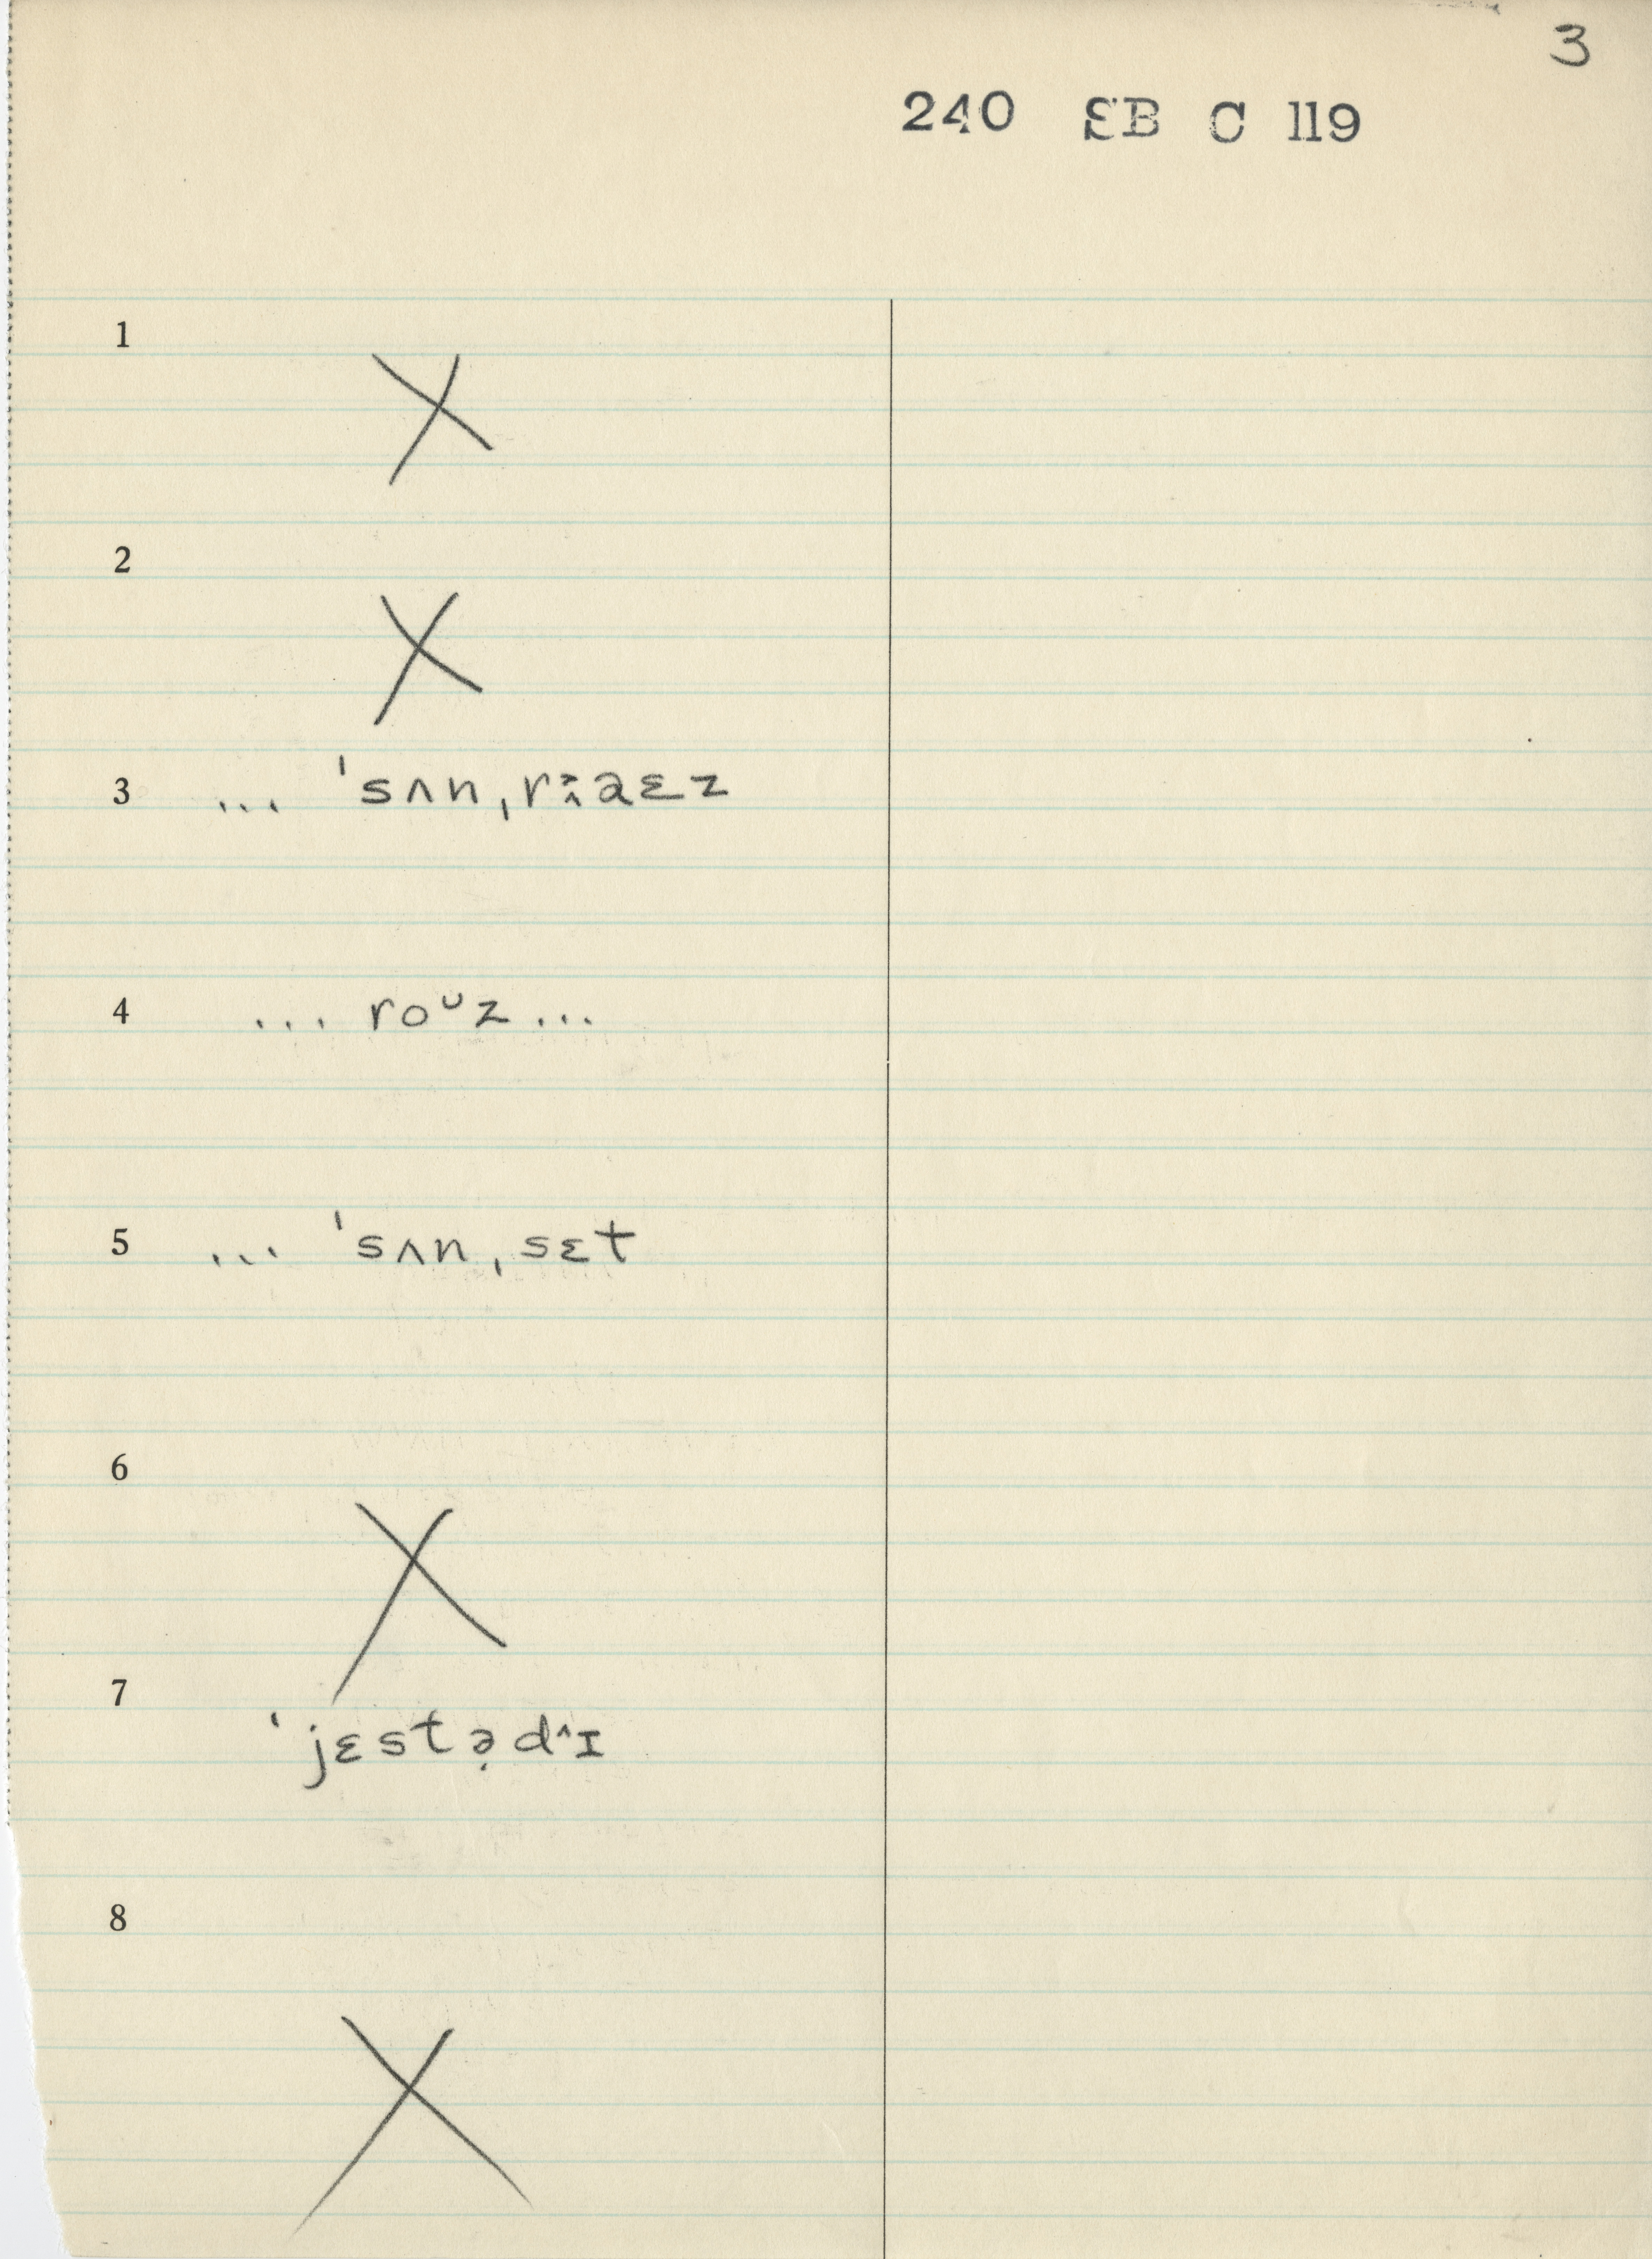 3
240 SB C 119
1
X
2
X
3 ... ˈsʌnˌrɑ˰˯ɛz
4 ... roᵁz ...
5 ... ˈsʌnˌsɛt
6
X
7 ˈjɛstə̣d^ɪ
8
X